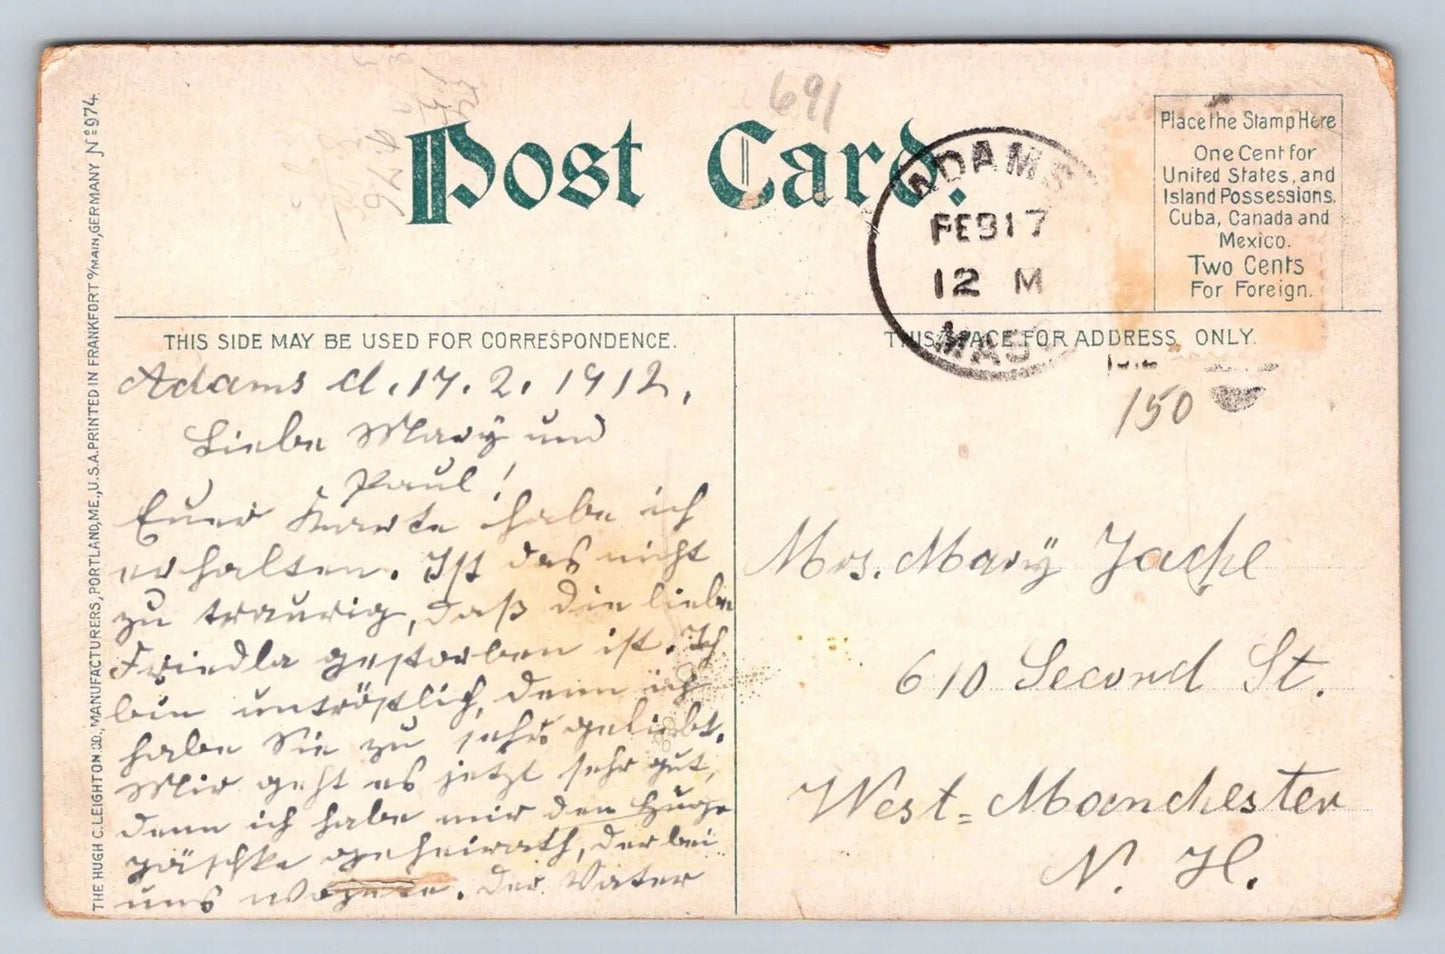 691
Post Card.
ADAMS
FEB 17
12 M
MASS
Place the Stamp Here
One Cent for
United States, and
Island Possessions.
Cuba, Canada and
Mexico.
Two Cents
For Foreign.
THE HUGH C. LEIGHTON CO., MANUFACTURERS, PORTLAND, ME., U.S.A. PRINTED IN FRANKFORT o/MAIN, GERMANY No 974.
THIS SIDE MAY BE USED FOR CORRESPONDENCE.
Adams d. 17. 2. 1912.
Liebe Mary und
Paul!
Euer Karte habe ich
erhalten. Ist das nicht
zu traurig, daß die liebe
Friedla gestorben ist. Ich
bin untröstlich, denn ich
habe Sie zu sehr geliebt.
Mir geht es jetzt sehr gut,
denn ich habe mir den Hugo
geheirath, der bei
uns wognte. Der Vater
THIS SPACE FOR ADDRESS ONLY.
150
Mrs. Mary
610 Second St.
West=Manchester
N. H.